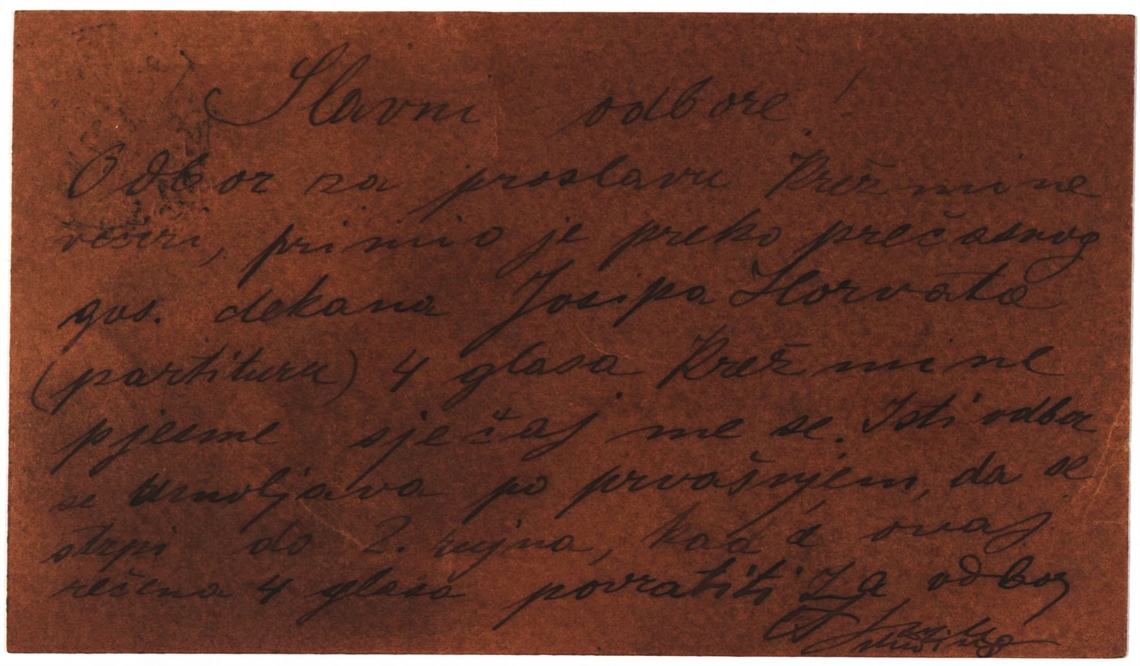 Slavni odbore!
Odbor za proslavu Krežmine
večeri, primio je preko prečasnog
gos. dekana Josipa Horvata
(partituru) 4 glasa Krežmine
pjesme sječaj me se. Isti odbor
se umoljava po prvašnjem, da se
strpi do 2. rujna, kad ovaj
rečena 4 glasa povratiti Za odbor